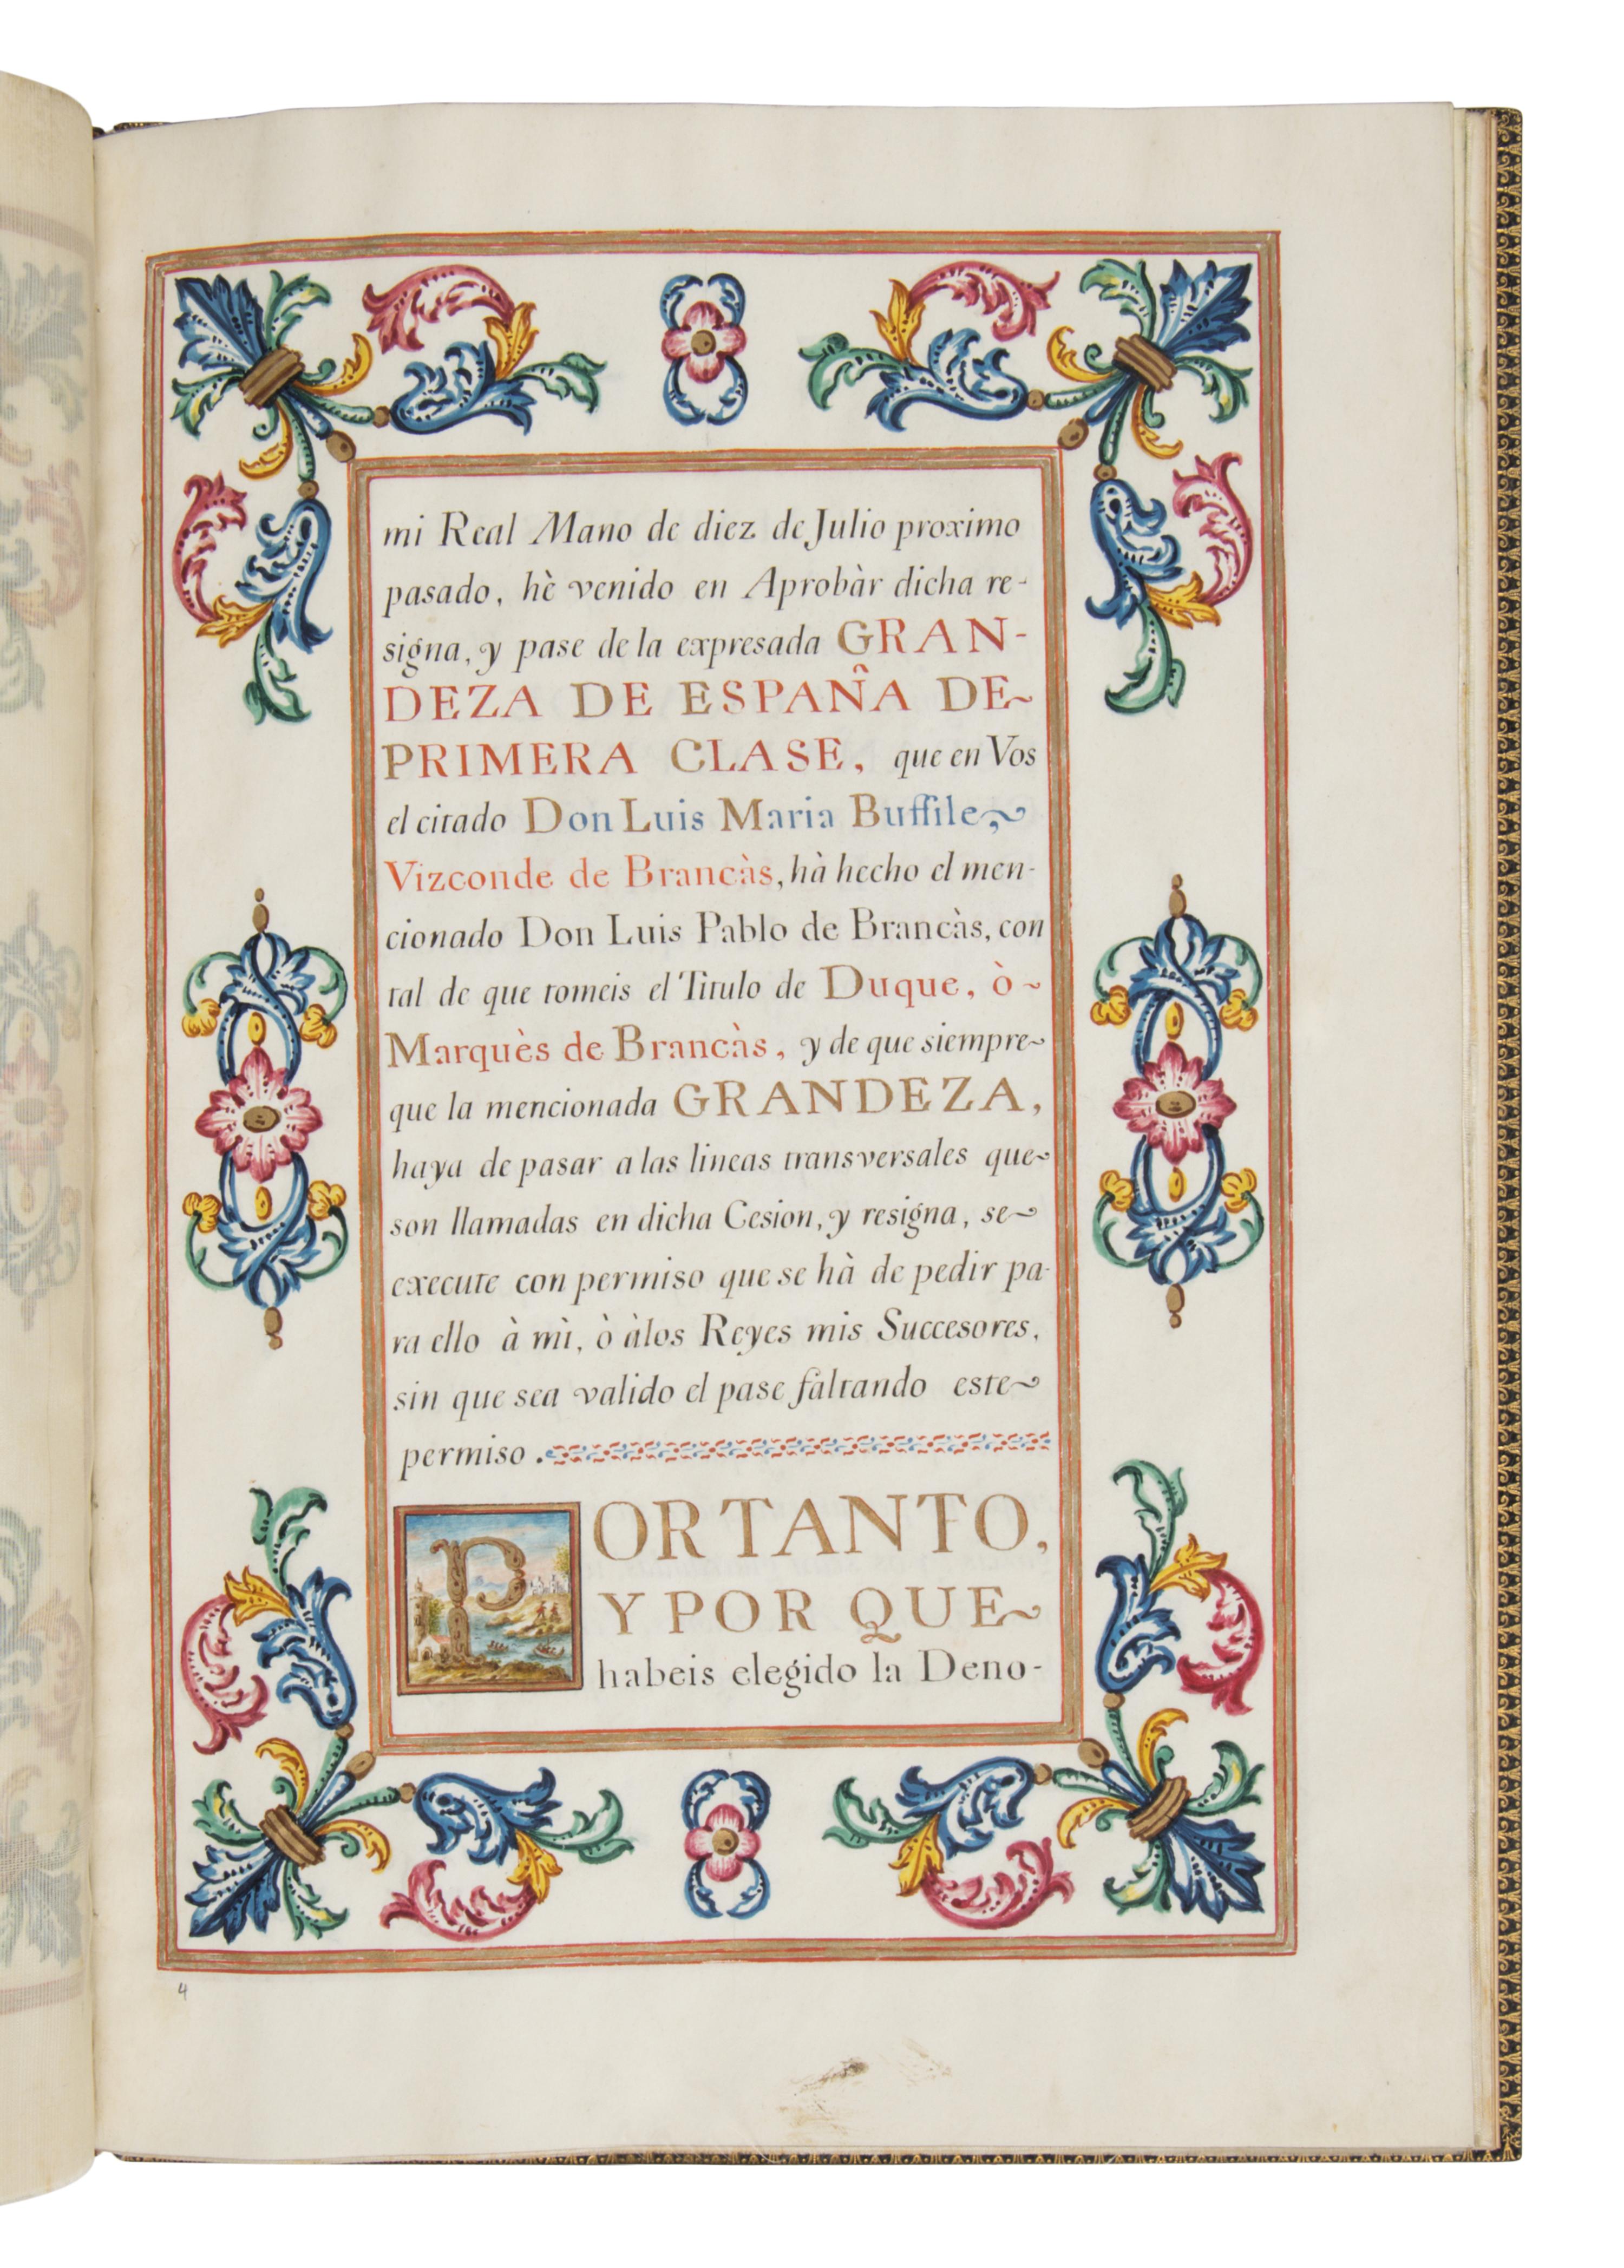 mi Real Mano de diez de Julio proximo
pasado, hè venido en Aprobàr dicha re-
signa, y pase de la expresada GRAN-
DEZA DE ESPAÑA DE~
PRIMERA CLASE, que en Vos
el citado Don Luis Maria Buffile,~
Vizconde de Brancàs, hà hecho el men-
cionado Don Luis Pablo de Brancàs, con
tal de que tomeis el Titulo de Duque, ò~
Marquès de Brancàs, y de que siempre~
que la mencionada GRANDEZA,
haya de pasar a las lineas transversales que~
son llamadas en dicha Cesion, y resigna, se~
execute con permiso que se hà de pedir pa-
ra ello à mì, ò àlos Reyes mis Succesores,
sin que sea valido el pase faltando este~
permiso.
POR TANTO,
Y POR QUE~
habeis elegido la Deno-
4